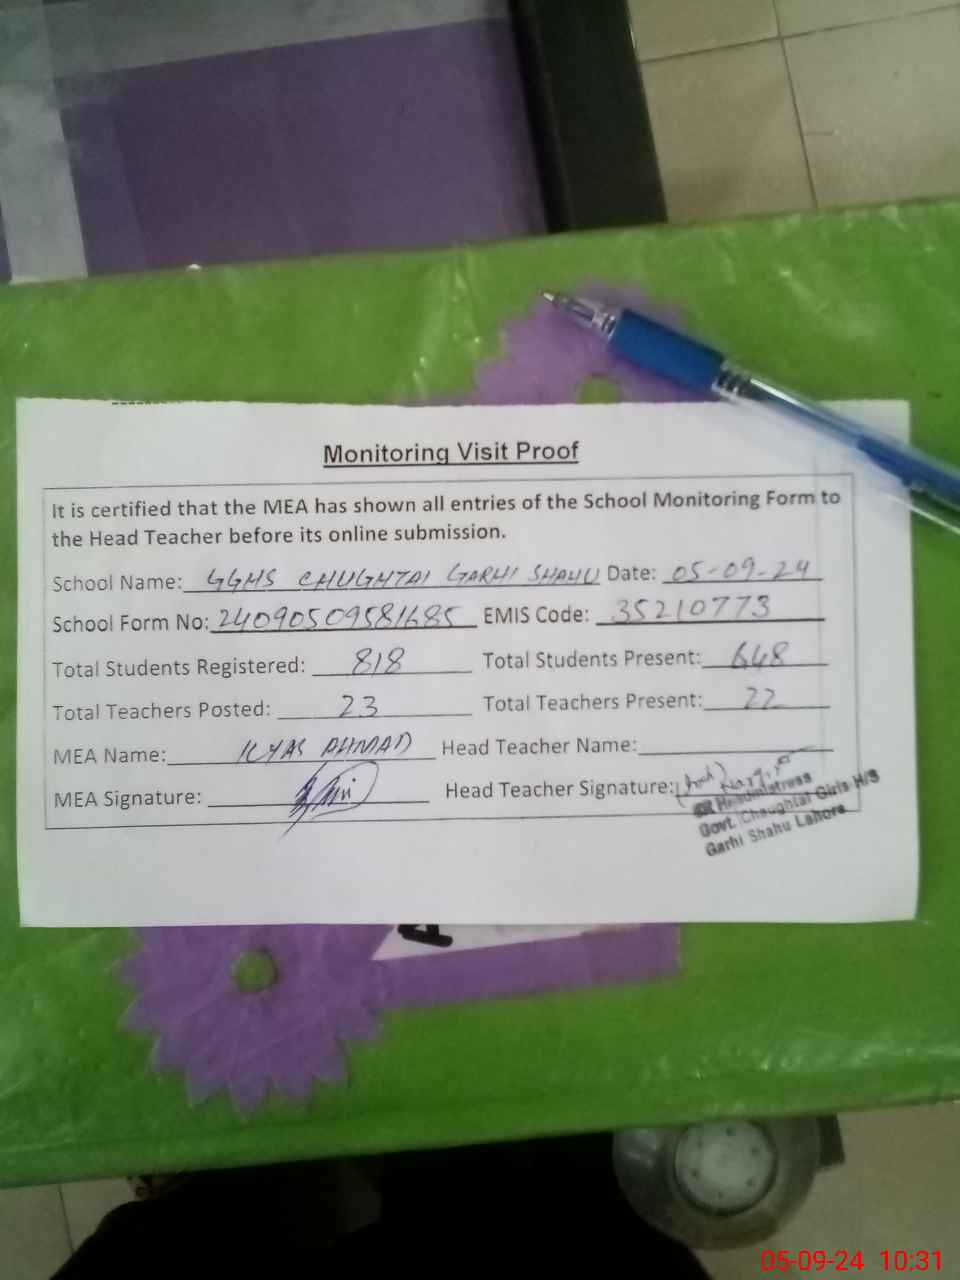 Monitoring Visit Proof
It is certified that the MEA has shown all entries of the School Monitoring Form to
the Head Teacher before its online submission.
School Name: GGHS CHUGHTAI GARHI SHAHU Date: 05-09-24
School Form No: 24090509581685 EMIS Code: 35210773
Total Students Registered: 818 Total Students Present: 648
Total Teachers Posted: 23 Total Teachers Present: 22
MEA Name: ILYAS AHMAD Head Teacher Name:
MEA Signature: Head Teacher Signature:
Headmistress
Govt. Chaughtai Girls H/S
Garhi Shahu Lahore
05-09-24 10:31